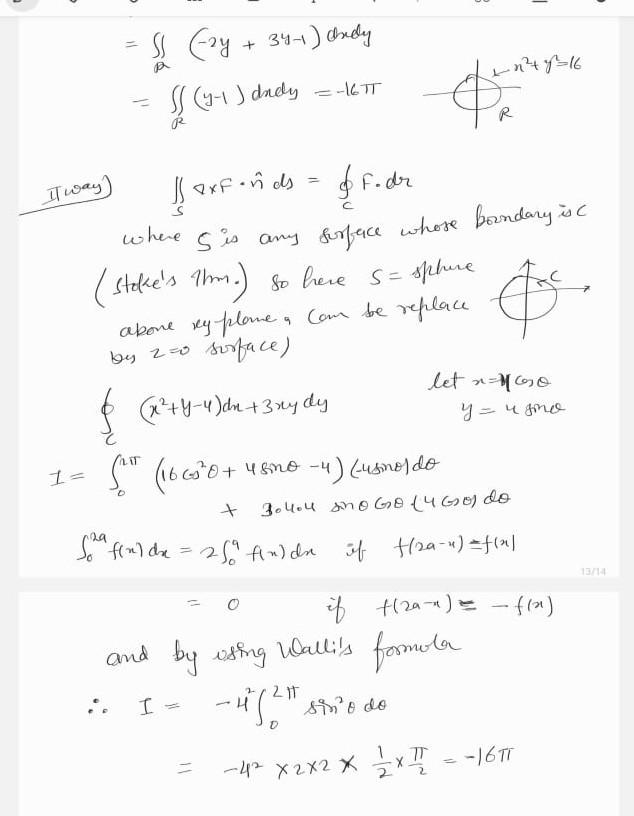 = ∬_R (-2y + 3y-1) dxdy
= ∬_R (y-1) dxdy = -16π
x²+y²=16
R
II way) ∬_S ∇×F·n̂ ds = ∮_C F.dr
where S is any surface whose boundary is C
(Stoke's Thm.) so here S = sphere
above xy-plane, can be replace
by z=0 surface)
C
∮_C (x²+y-4)dx + 3xy dy
let x = 4 cosθ
y = 4 sinθ
I = ∫₀^2π (16 cos²θ + 4 sinθ - 4) (-4 sinθ) dθ
+ 3.4.4 sinθ cosθ (4 cosθ) dθ
∫₀^2a f(x) dx = 2∫₀^a f(x) dx if f(2a-x) = f(x)
13/14
= 0 if f(2a-x) = - f(x)
and by using Walli's formula
∴ I = -4² ∫₀^2π sin²θ dθ
= -4² × 2×2 × 1/2 × π/2 = -16π